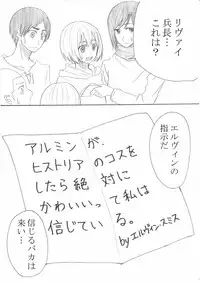 リヴァイ
兵長…
これは?
エルヴィンの
指示だ
アルミンが、
ヒストリアのコスを
したら絶対に
かわいいって私は
信じている。
byエルヴィン.スミス
信じるバカは
来い…